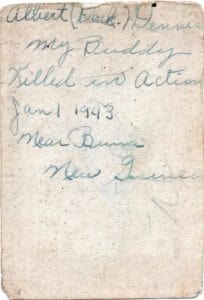 Albert
My Buddy
Killed in Action
Jan 1 1943
Near Buna
New Guinea